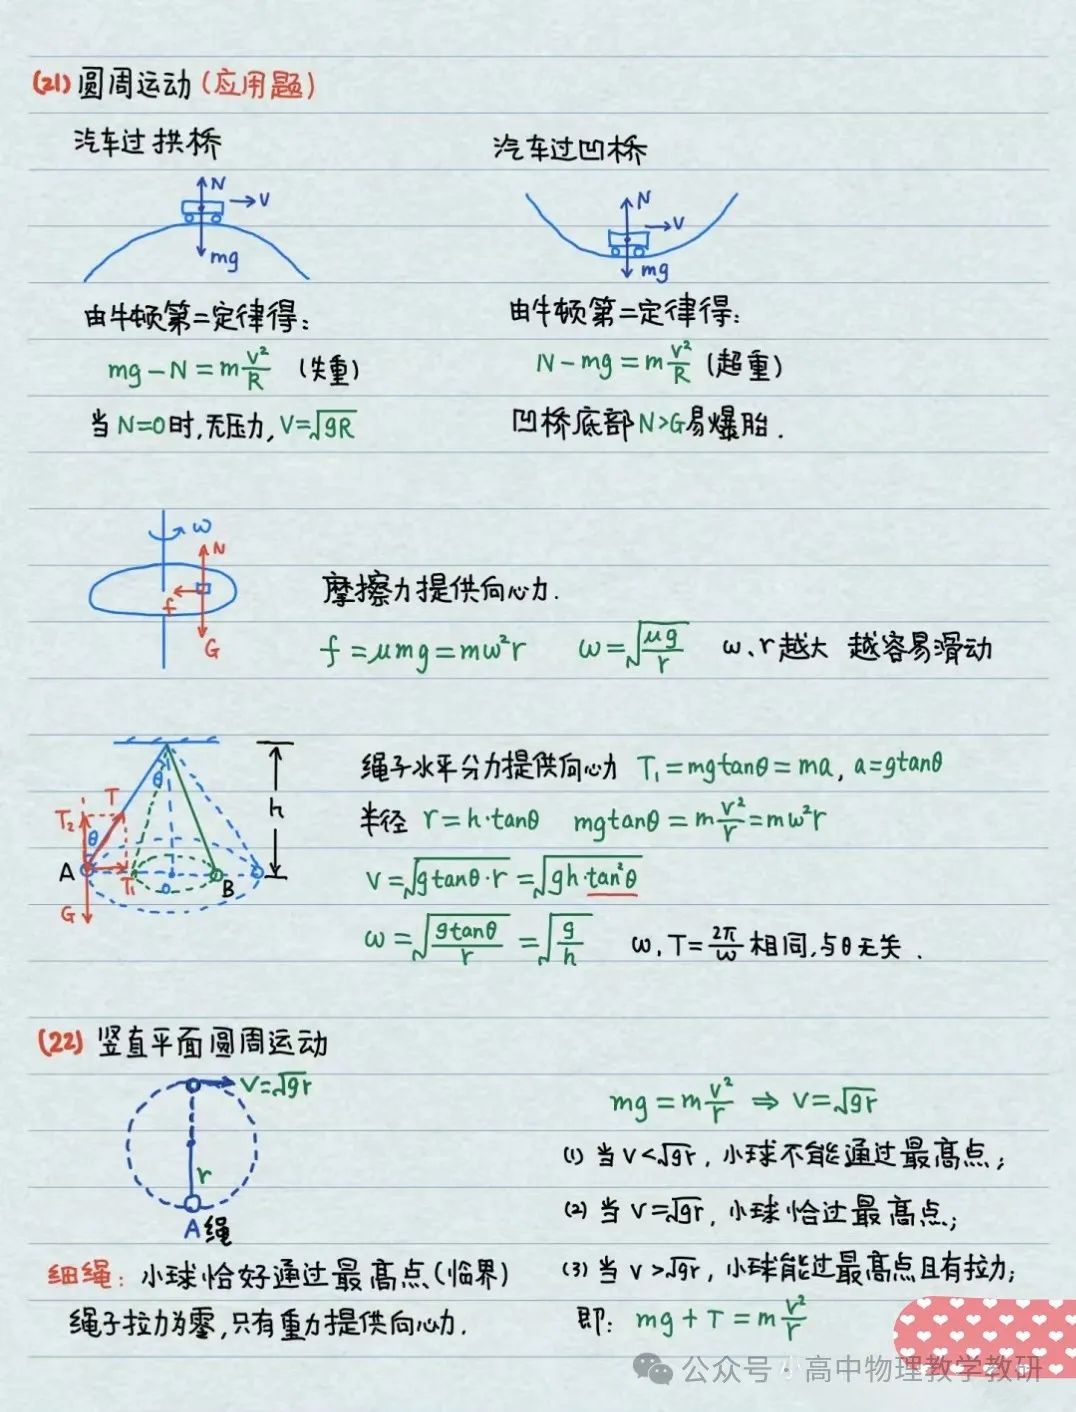 (21) 圆周运动 (应用题)
汽车过拱桥
N
V
mg
由牛顿第二定律得:
mg-N=m\frac{v²}{R} (失重)
当N=0时,无压力,V=√gR
汽车过凹桥
N
V
mg
由牛顿第二定律得:
N-mg=m\frac{v²}{R} (超重)
凹桥底部N>G易爆胎.
ω
N
f
G
摩擦力提供向心力.
f=μmg=mω²r ω=√\frac{μg}{r} ω、r越大 越容易滑动
θ
h
T
T₂
θ
A
T₁
o
B
G
绳子水平分力提供向心力 T₁=mgtanθ=ma, a=gtanθ
半径 r=h·tanθ mgtanθ=m\frac{v²}{r}=mω²r
V=√gtanθ·r=√gh·tan²θ
ω=√\frac{gtanθ}{r}=√\frac{g}{h} ω,T=\frac{2π}{ω}相同,与θ无关.
(22) 竖直平面圆周运动
V=√gr
r
A绳
细绳: 小球恰好通过最高点(临界)
绳子拉力为零,只有重力提供向心力.
mg=m\frac{v²}{r} ⇒ V=√gr
(1) 当V<√gr, 小球不能通过最高点;
(2) 当V=√gr, 小球恰过最高点;
(3) 当V>√gr, 小球能过最高点且有拉力;
即: mg+T=m\frac{v²}{r}
公众号·小高中物理教学教研